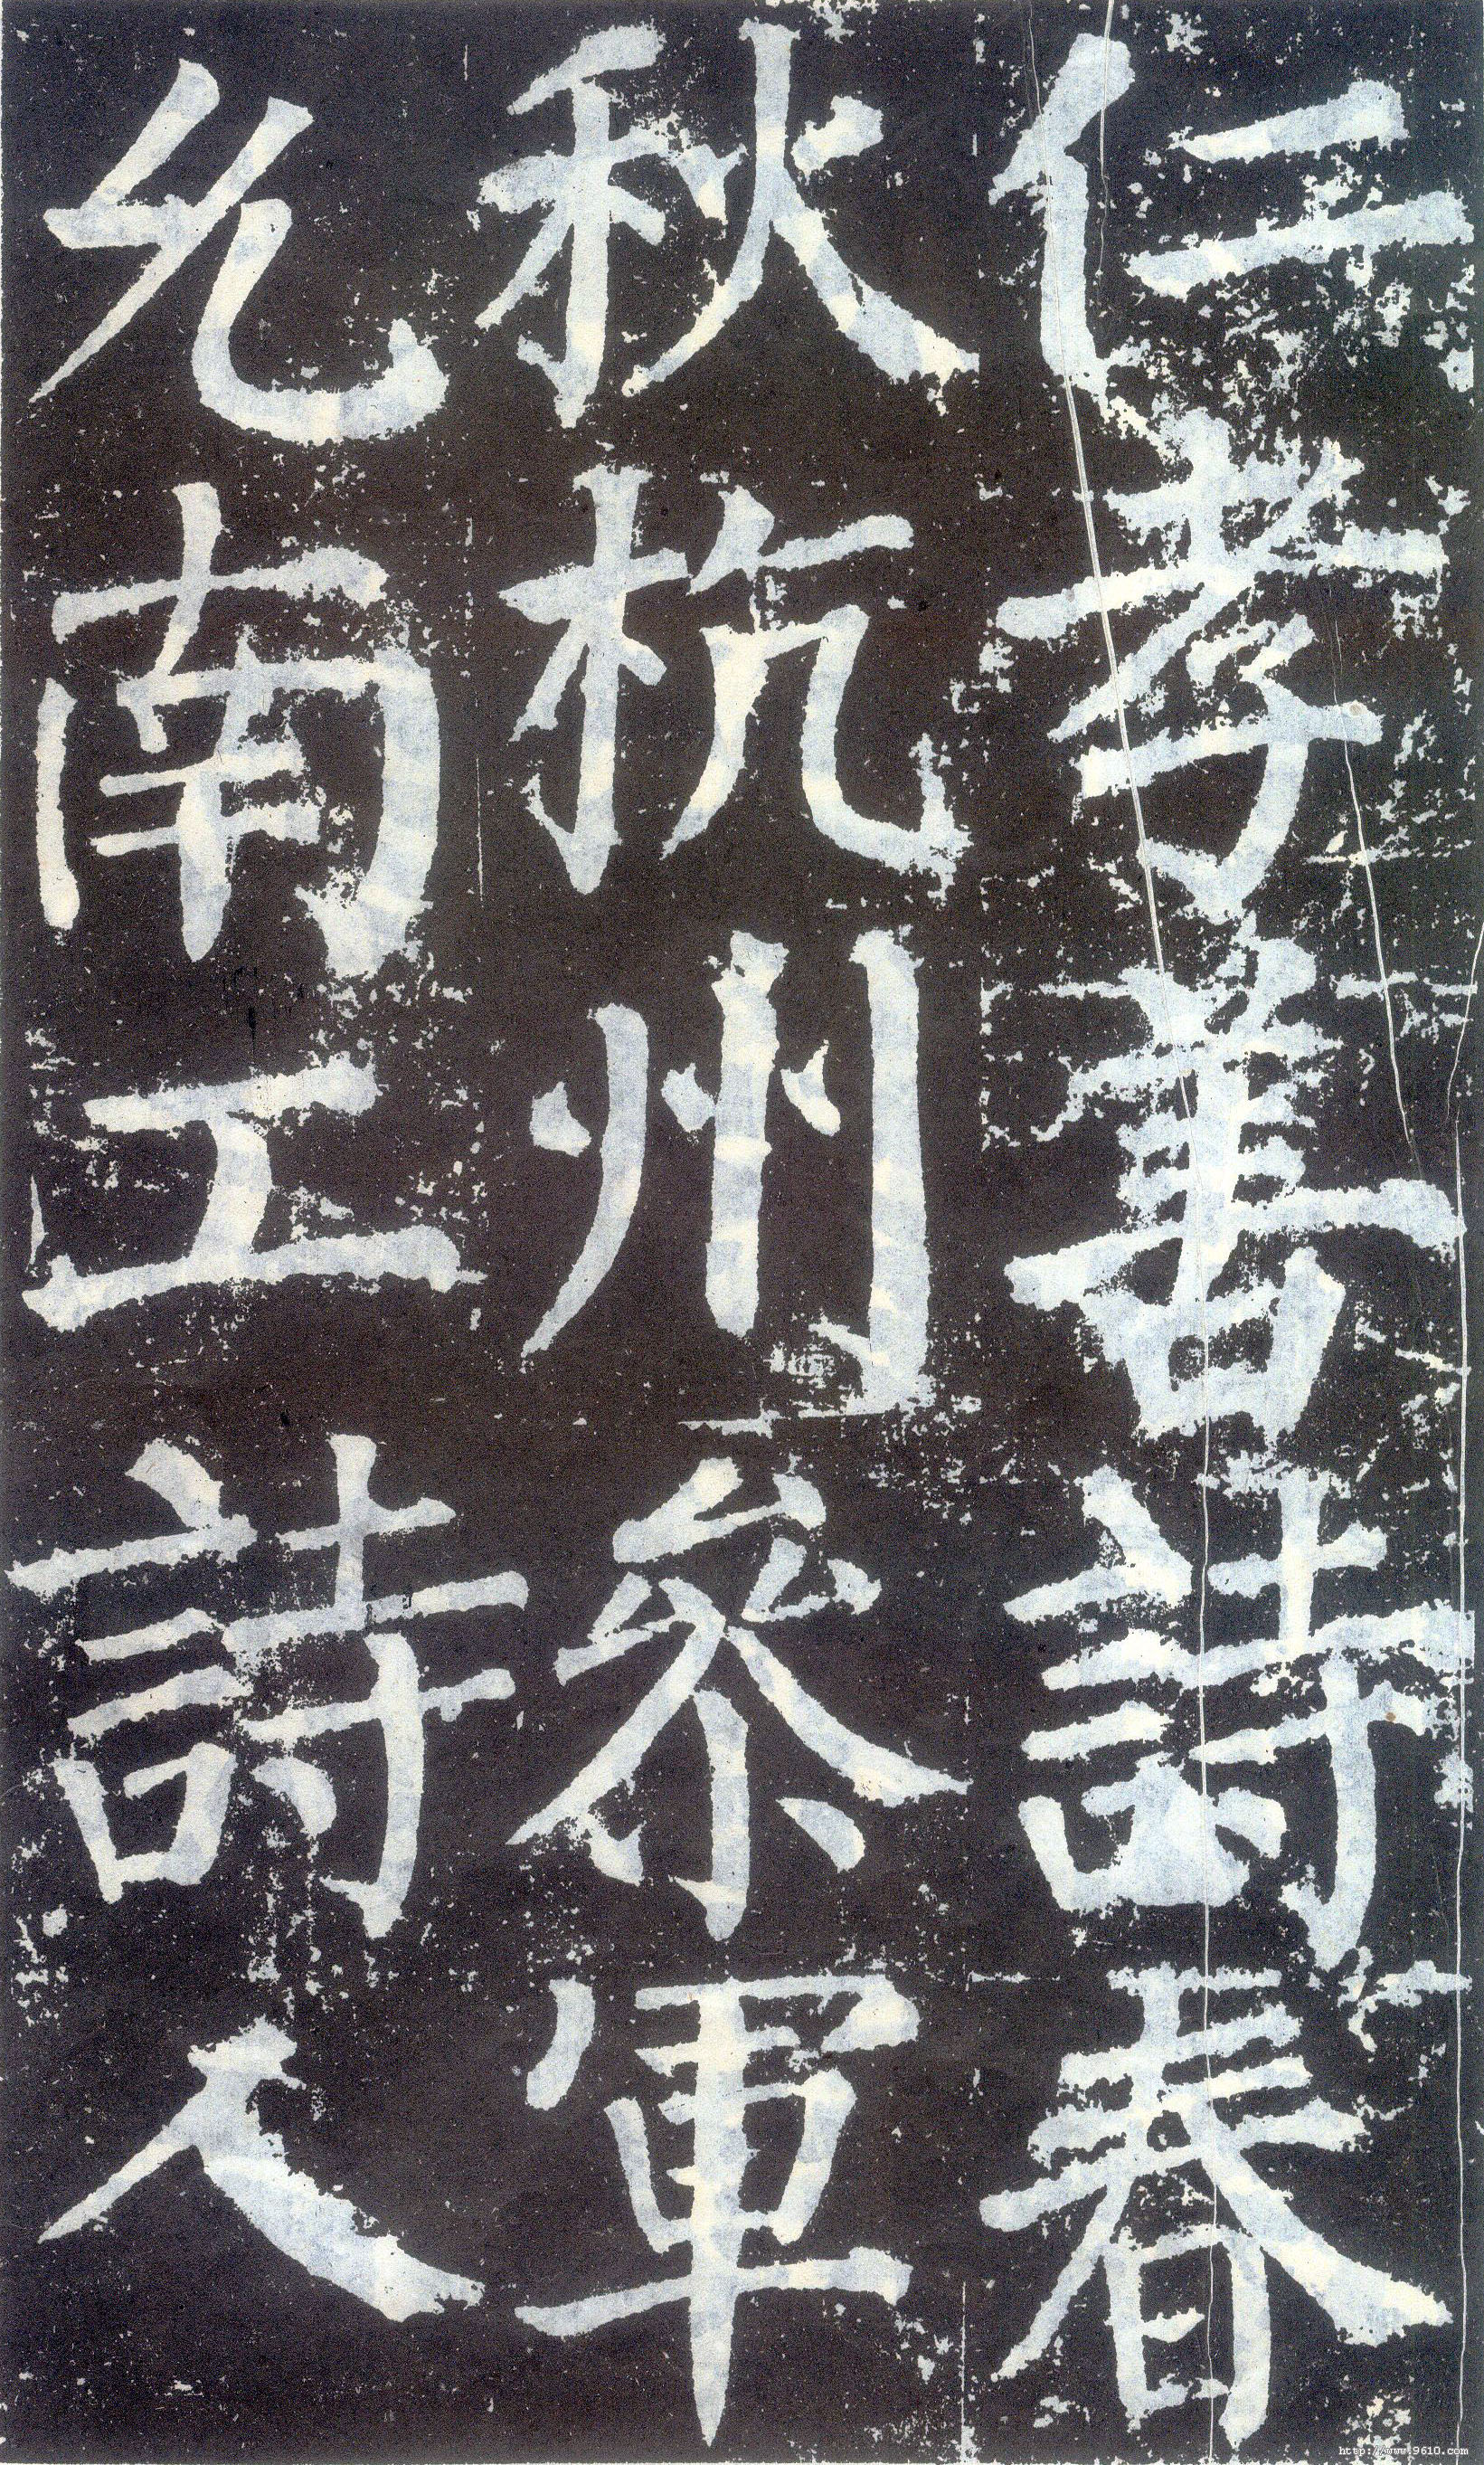 仁孝善詩春
秋杭州叅軍
允南工詩人
http://www.9610.com